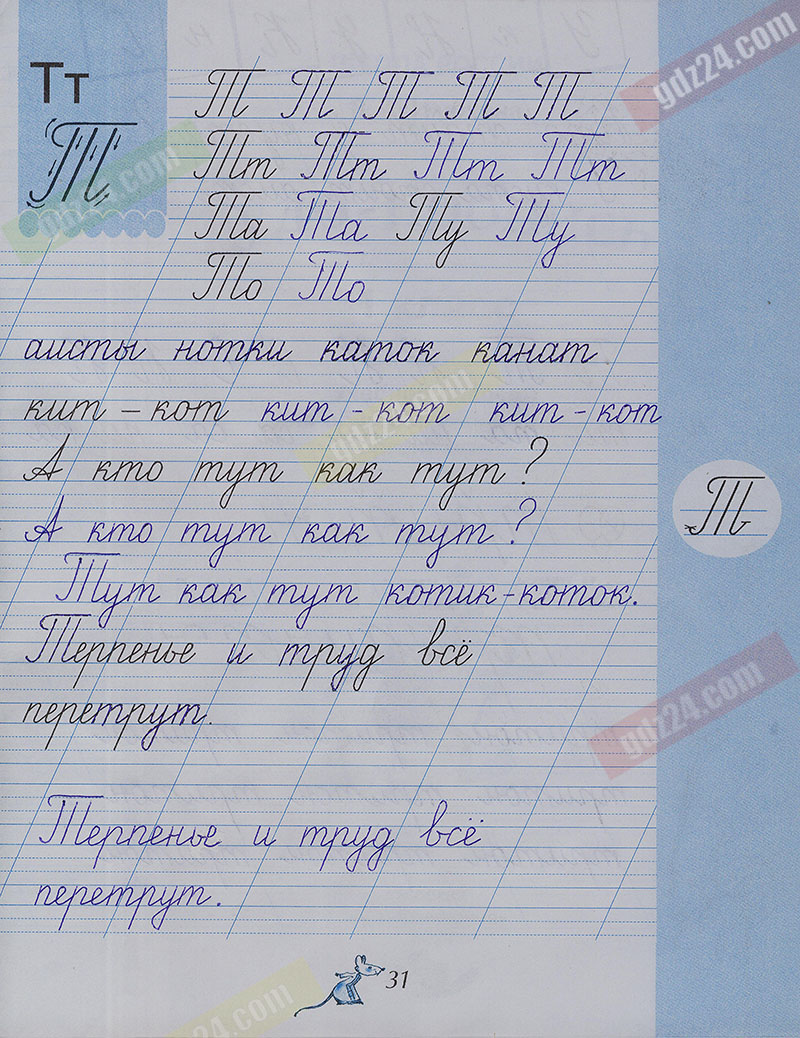 Тт
Т
Т Т Т Т Т
Тт Тт Тт Тт
Та Та Ту Ту
То То
аисты нотки каток канат
кит – кот кит - кот кит - кот
А кто тут как тут?
А кто тут как тут?
Тут как тут котик-коток.
Т
Терпенье и труд всё
перетрут.
Терпенье и труд всё
перетрут.
31
gdz24.com
gdz24.com
gdz24.com
gdz24.com
z24.com